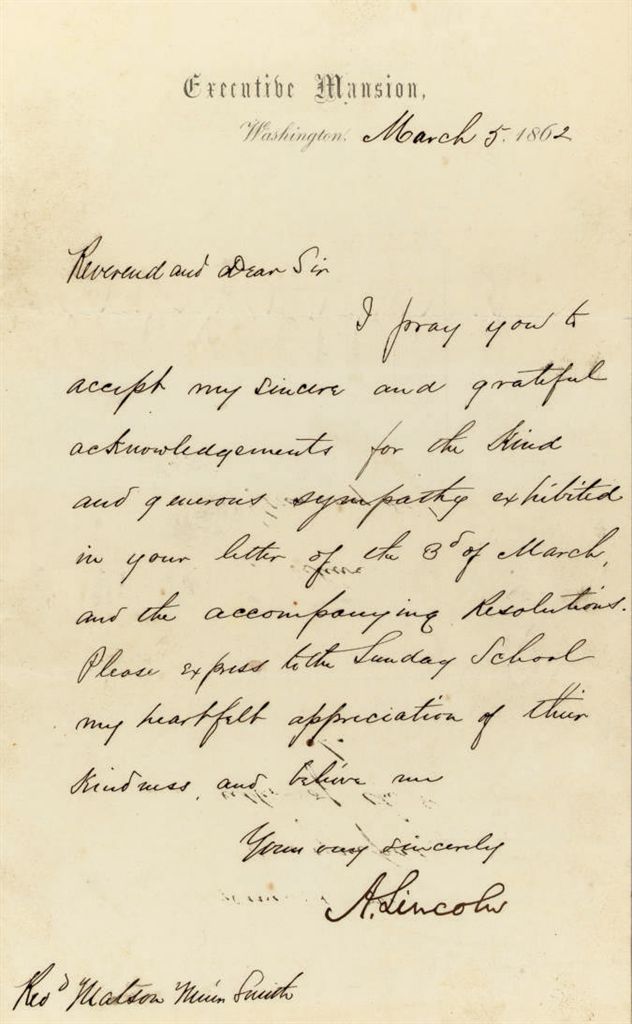 Executive Mansion,
Washington, March 5. 1862
Reverend and Dear Sir
I pray you to
accept my sincere and grateful
acknowledgements for the kind
and generous sympathy exhibited
in your letter of the 3d of March,
and the accompanying Resolutions.
Please express to the Sunday School
my heartfelt appreciation of their
kindness, and believe me
Yours very sincerely
A. Lincoln
Revd Matson Meier Smith